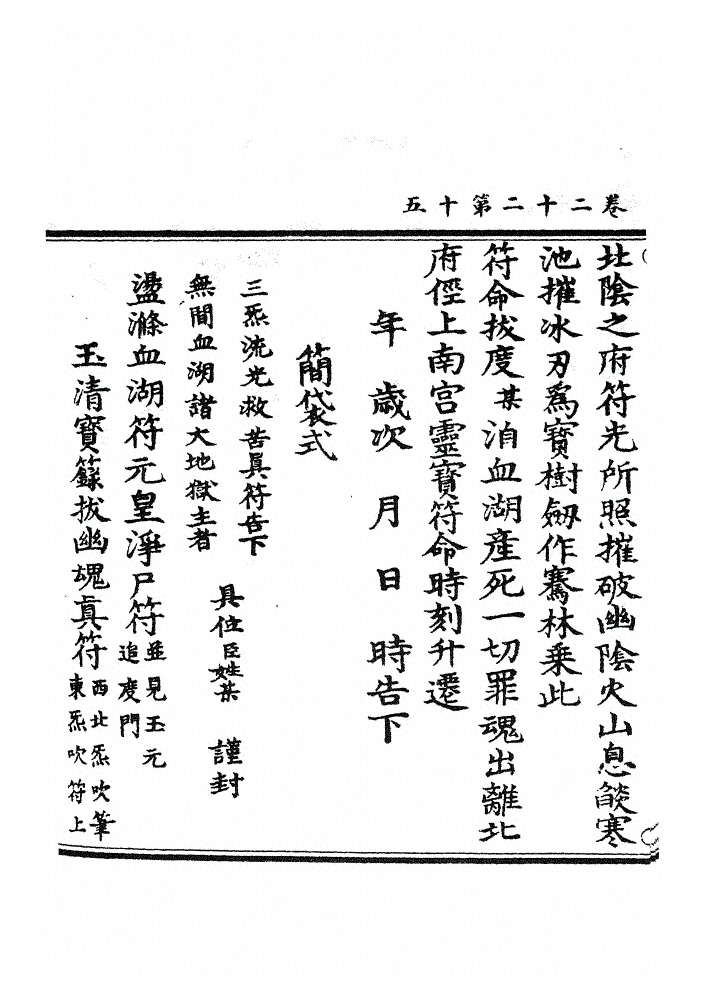 卷二十二第十五
北陰之府符光所照摧破幽陰火山息燄寒
池摧冰刃爲寶樹劒作騫林乗此
符命拔度某洎血湖產死一切罪魂出離北
府徑上南宫靈寶符命時刻升遷
年 歲次 月 日 時告下
簡袋式
三炁流光救苦眞符告下
具位臣姓某 謹封
無間血湖諸大地獄主者
盪滌血湖符元皇淨尸符並見玉元
追度門
玉清寶籙拔幽魂真符西北炁吹筆
東炁吹符上